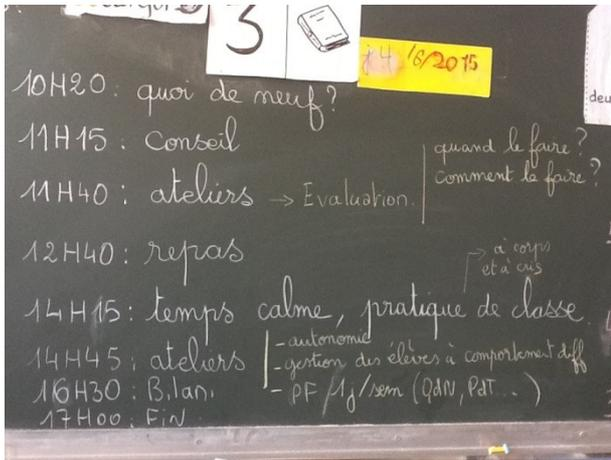 3
j4 /6/2015
deu
10H20: quoi de neuf?
11H15: Conseil
11H40: ateliers → Evaluation.
quand le faire?
comment le faire?
12H40: repas
→ à corps
et à cris
14H15: temps calme, pratique de classe.
14H45: ateliers
- autonomie
- gestion des élèves à comportement diff
- PF /1j/sem (QdN, PdT...)
16H30: Bilan
17H00: FiN